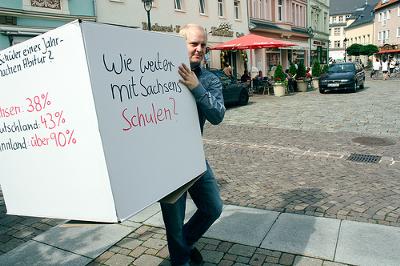 Schüler eines Jahr-
machen Abitur?
chsen: 38%
eutschland: 43%
innland: über 90%
Wie weiter
mit Sachsens
Schulen?